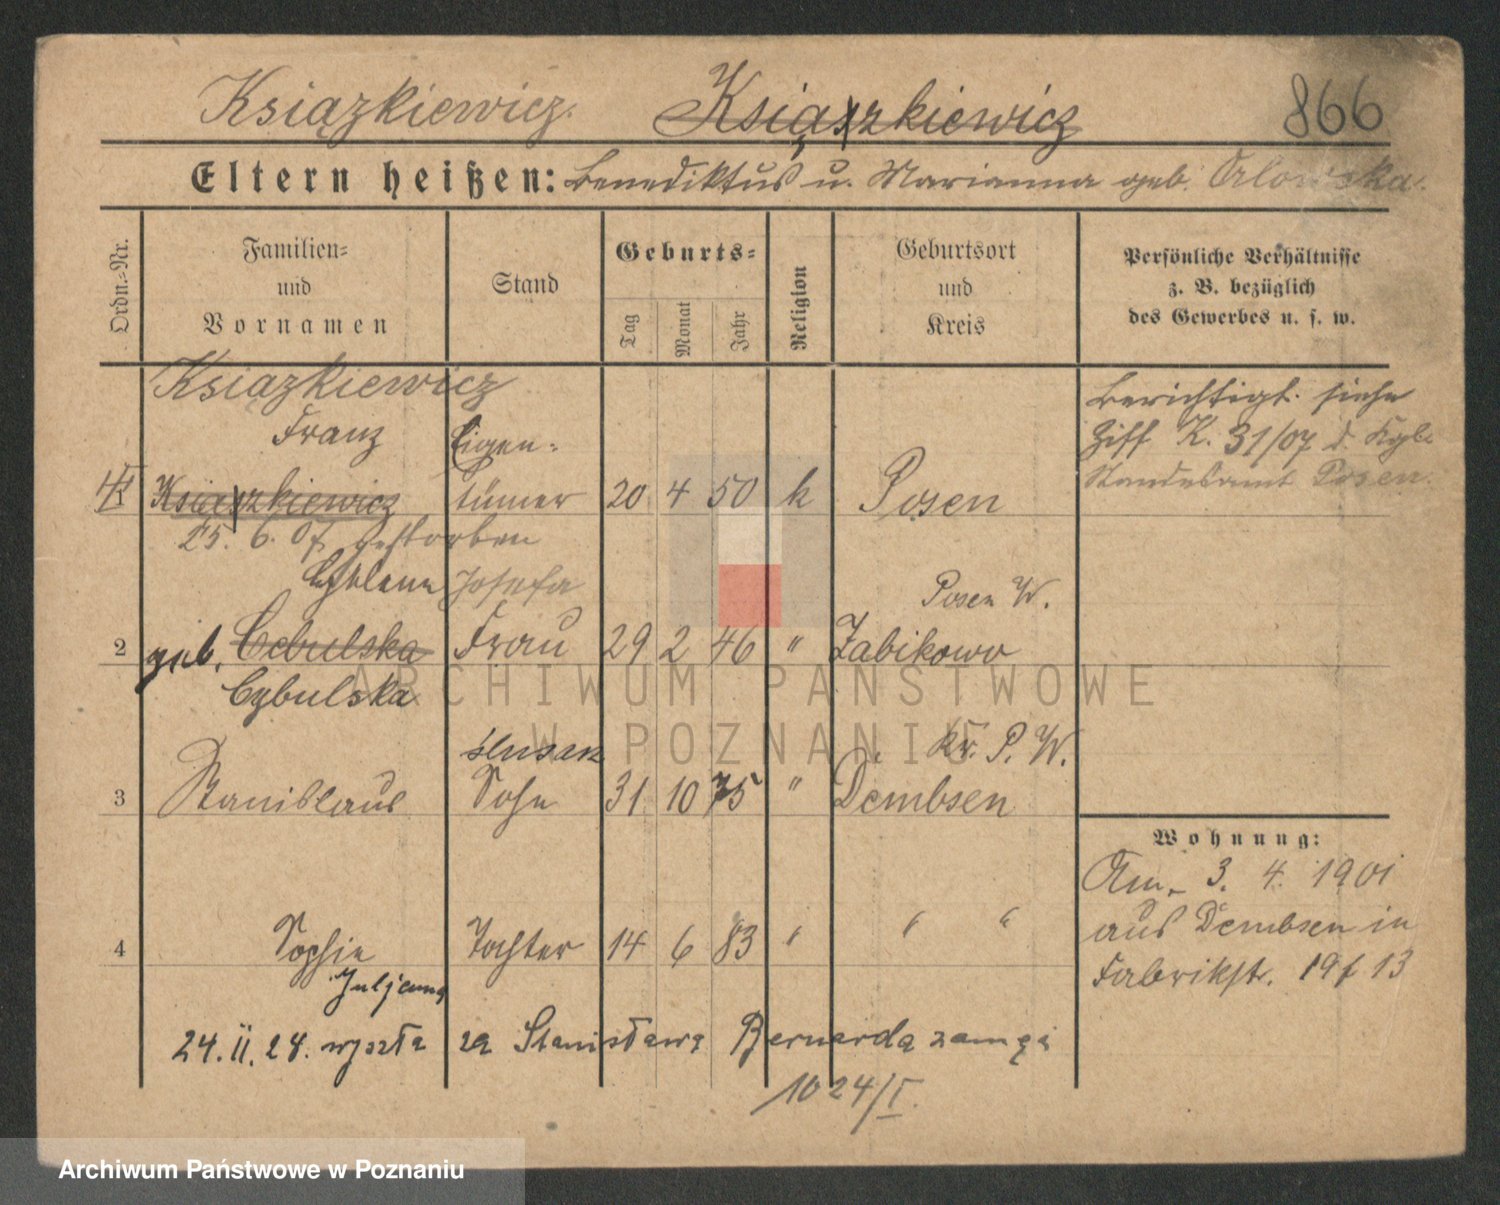 Książkiewicz. Książkiewicz 866
Eltern heißen: Benediktus u. Marianna geb. Orlowska.
Ordn.-Nr.
Familien- und Vornamen
Stand
Geburts-
Tag Monat Jahr
Religion
Geburtsort und Kreis
Persönliche Verhältnisse z. B. bezüglich des Gewerbes u. s. w.
Ksiązkiewicz
Franz Eigen-
tümer 20 4 50 k Posen
25. 6. 07 gestorben
Berichtigt. siehe
Ziff K. 31/07 d. Kgl.
Standesamt Posen.
Josefa Posen W.
2 geb. Cebulska Frau 29 2 46 " Zabikowo
Cybulska
ślusarz Kr. P. W.
3 Stanislaus Sohn 31 10 75 " Dembsen
4 Sophie Tochter 14 6 83 " " "
Juljanna
24. II. 28. wyszła za Stanisława Bernarda zamąż
1024/I.
Wohnung:
Am 3. 4. 1901
aus Dembsen in
Fabrikstr. 19 f 13
ARCHIWUM PAŃSTWOWE
W POZNANIU
Archiwum Państwowe w Poznaniu